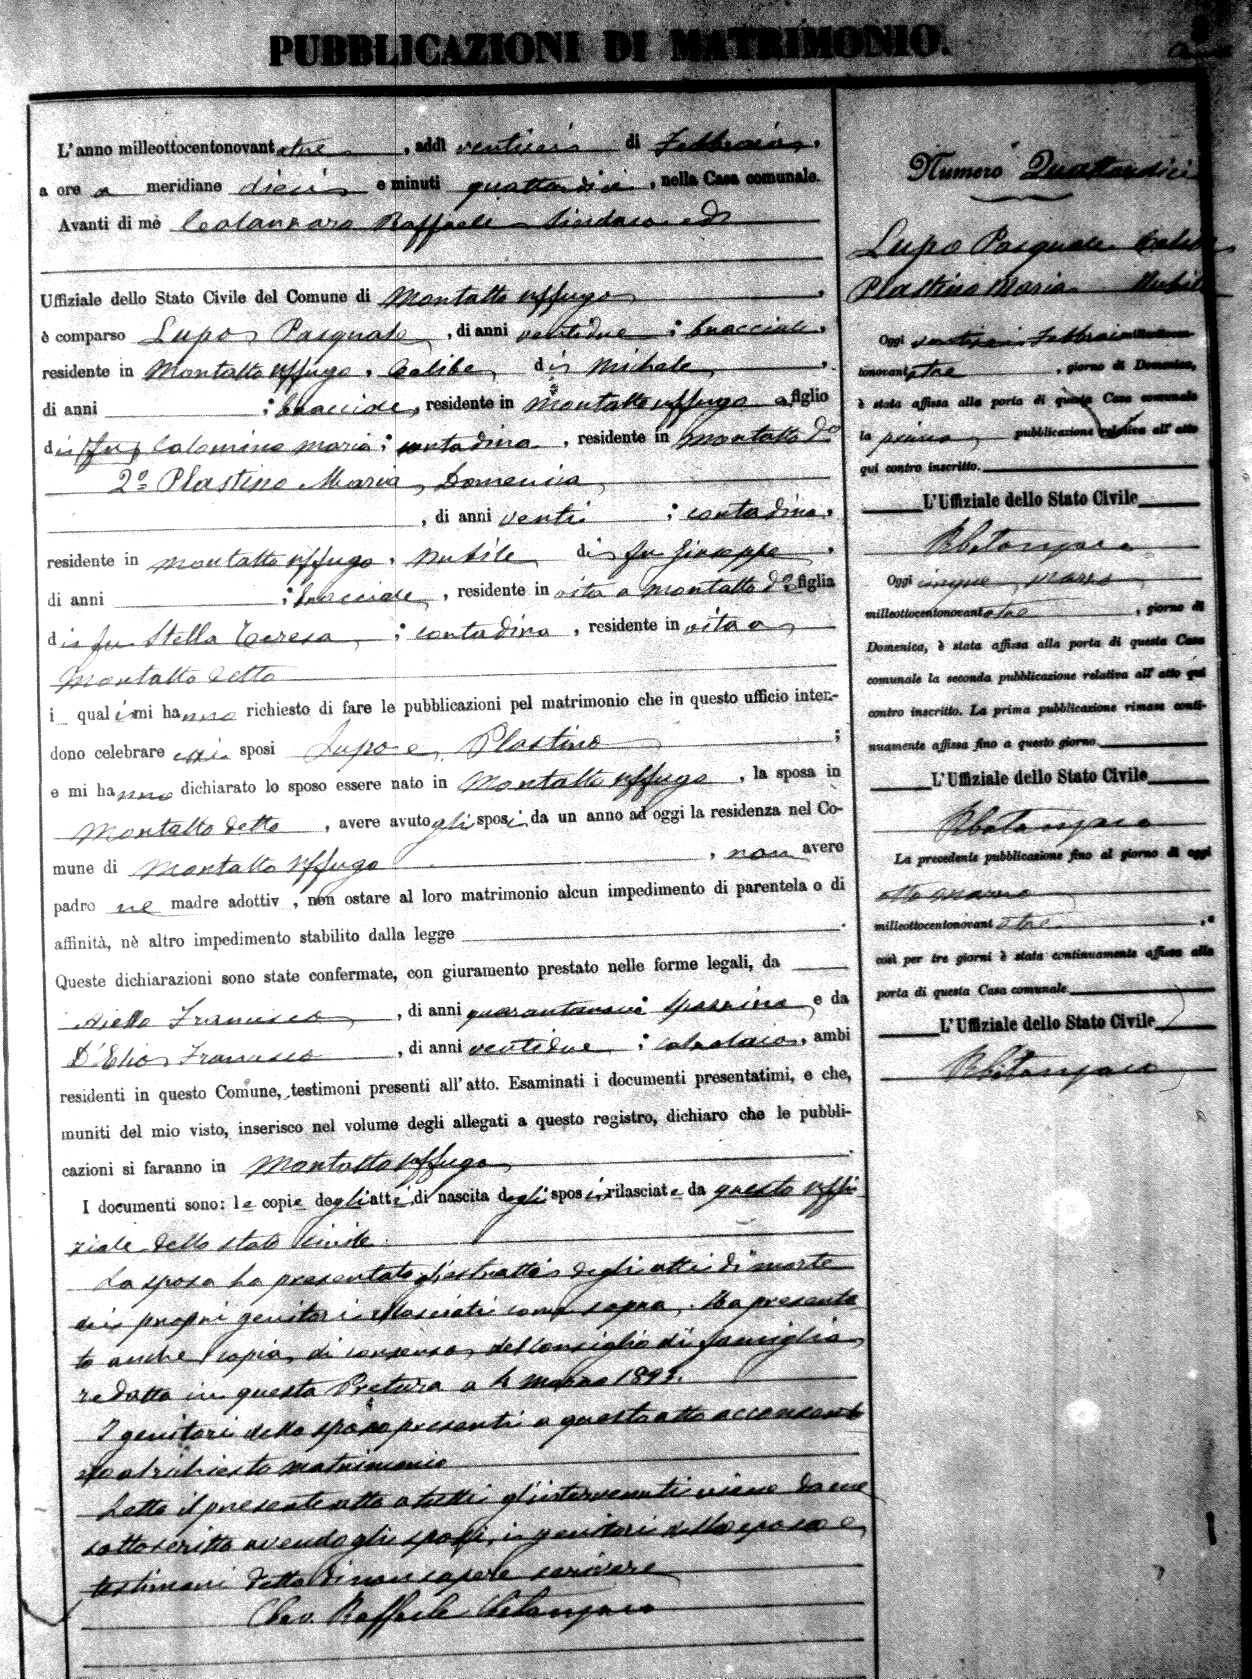 PUBBLICAZIONI DI MATRIMONIO.
L'anno milleottocentonovantatre, addì ventisei di Febbraio,
a ore a meridiane dieci e minuti quattordici, nella Casa comunale.
Avanti di mè Catanzaro Raffaele Sindaco ed
Uffiziale dello Stato Civile del Comune di Montalto Uffugo,
è comparso Lupo Pasquale, di anni ventidue; bracciale,
residente in Montalto Uffugo, Celibe, di Michele,
di anni ; bracciale, residente in Montalto Uffugo figlio
di (fu) Calomino Maria; contadina, residente in Montalto do
2º Plastino Maria, Domenica
, di anni venti; contadina,
residente in Montalto Uffugo, nubile di fu Giuseppe,
di anni ; bracciale, residente in vita a Montalto do figlia
di fu Stella Teresa; contadina, residente in vita a
Montalto detto
i quali mi hanno richiesto di fare le pubblicazioni pel matrimonio che in questo ufficio inten-
dono celebrare essi sposi Lupo e Plastino;
e mi hanno dichiarato lo sposo essere nato in Montalto Uffugo, la sposa in
Montalto detto, avere avuto gli sposi da un anno ad oggi la residenza nel Co-
mune di Montalto Uffugo, non avere
padre ne madre adottiv, non ostare al loro matrimonio alcun impedimento di parentela o di
affinità, nè altro impedimento stabilito dalla legge.
Queste dichiarazioni sono state confermate, con giuramento prestato nelle forme legali, da
Aiello Francesco, di anni quarantasei; spazzino, e da
D'Elio Francesco, di anni ventidue; calzolaio, ambi
residenti in questo Comune, testimoni presenti all'atto. Esaminati i documenti presentatimi, e che,
muniti del mio visto, inserisco nel volume degli allegati a questo registro, dichiaro che le pubbli-
cazioni si faranno in Montalto Uffugo.
I documenti sono: le copie degli atti di nascita degli sposi rilasciate da questo Uffi
ziale dello stato civile
La sposa ha presentato gli estratti degli atti di morte
dei propri genitori rilasciati come sopra. Ha presenta
to anche copia di consenso del consiglio di famiglia
redatta in questa Pretura a 4 marzo 1893.
I genitori dello sposo presenti a questo atto acconsento
no al richiesto matrimonio
Letto il presente atto a tutti gl'intervenuti viene da me
sottoscritto avendo gli sposi, i genitori dello sposo e
testimoni detto di non sapere scrivere
Cav. Raffaele Catanzaro
Numero Quattordici
Lupo Pasquale Celibe
Plastino Maria Nubile
Oggi ventisei Febbraio milleottocen-
tonovantatre, giorno di Domenica,
è stata affissa alla porta di questa Casa comunale
la prima pubblicazione relativa all'atto
qui contro inscritto.
L'Uffiziale dello Stato Civile
RCatanzaro
Oggi cinque marzo
milleottocentonovantatre, giorno di
Domenica, è stata affissa alla porta di questa Casa
comunale la seconda pubblicazione relativa all'atto qui
contro inscritto. La prima pubblicazione rimase conti-
nuamente affissa fino a questo giorno
L'Uffiziale dello Stato Civile
RCatanzaro
La precedente pubblicazione fino al giorno di oggi
otto marzo
milleottocentonovantatre, e
così per tre giorni è stata continuamente affissa alla
porta di questa Casa comunale
L'Uffiziale dello Stato Civile
RCatanzaro